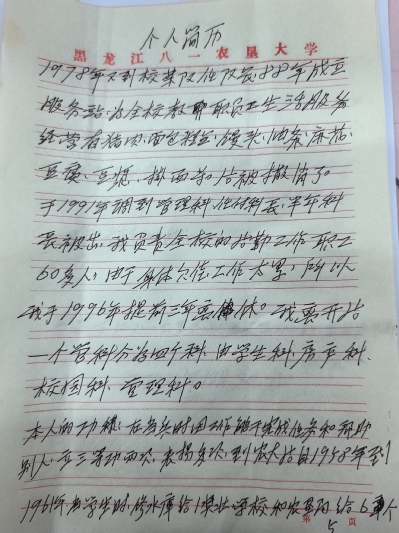 个人简历
黑龙江八一农垦大学
1978年又到校某改任改农,88年成立
服务站,为全校教职职员工生活服务
经营有猪肉,面包粮豆,馒头,油条,麻花,
豆浆,豆腐,挂面等,后被撤消了
于1991年调到管理科任科长,半年科
长被出,我负责全校的后勤工作,职工
60多人,由于身体欠佳工作太累,所以
我于1996年提前三年离休。我离开后
一个管科分为四个科,由学生科,房产科,
校园科,管理科。
本人的功绩:在当兵时因工作肯干完成任务和帮助
别人,立三等功两次,表扬多次,到农大后自1958年到
1961年当学生时,修水库给 学校和农垦局给6 个
第 页
5